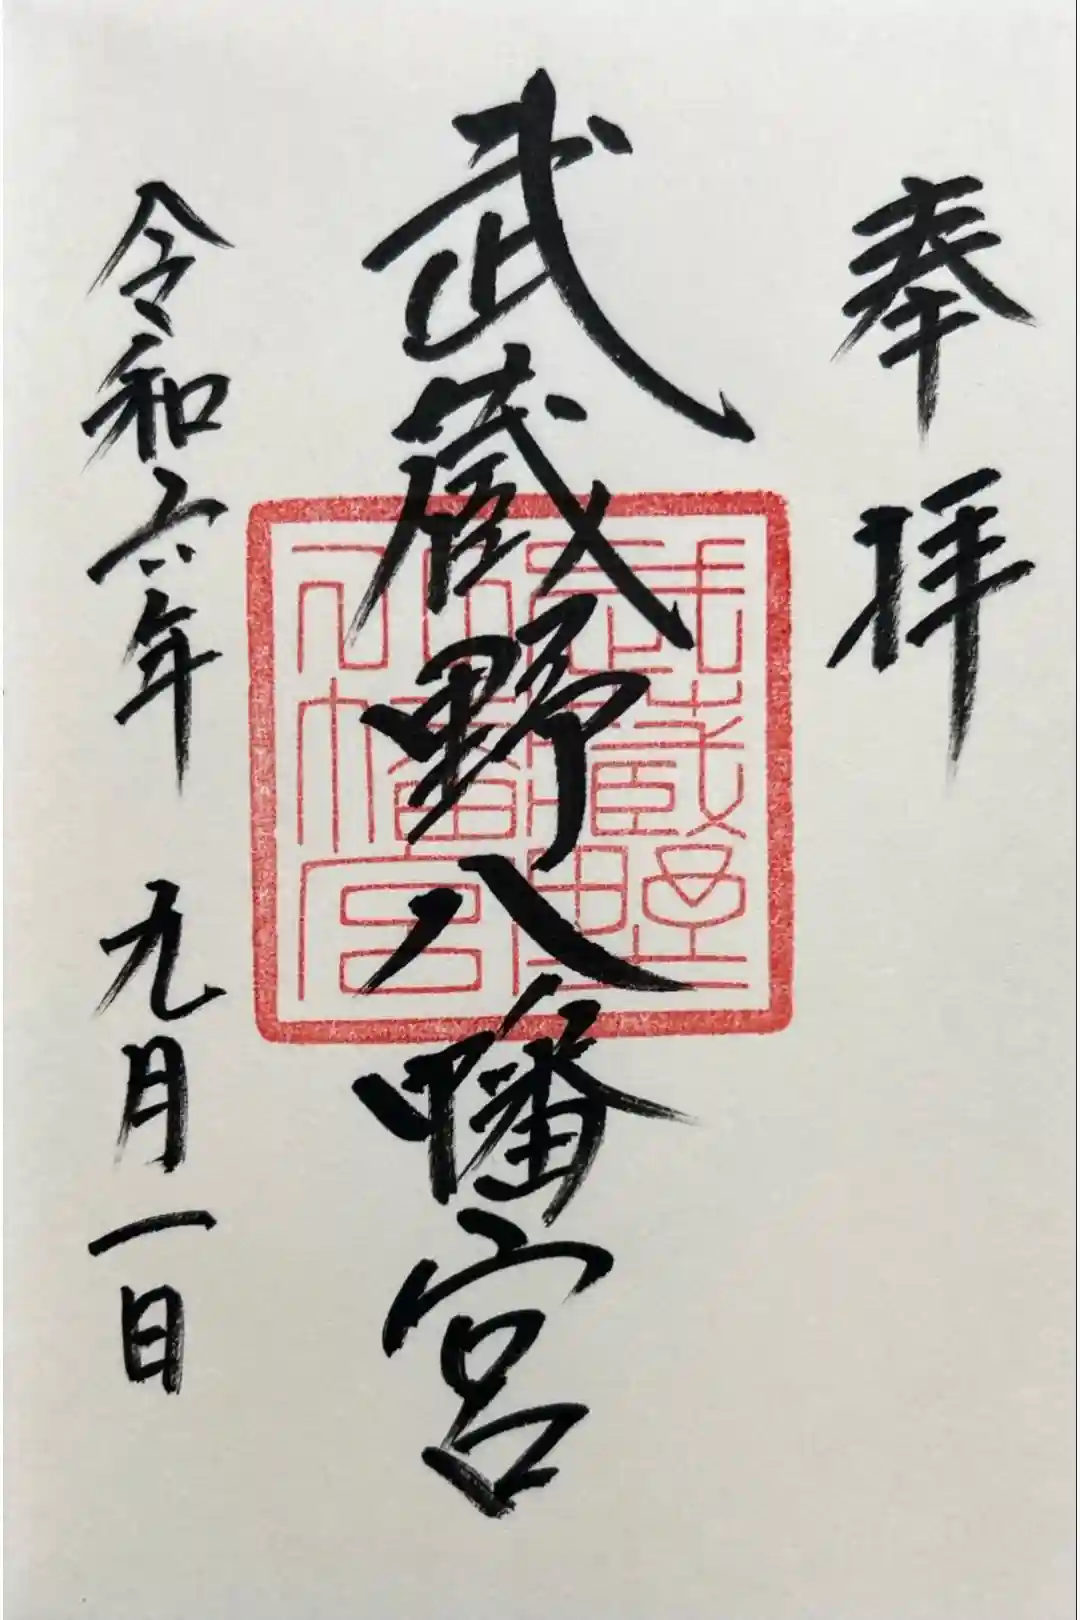 奉拝
武蔵野八幡宮
武蔵野
八幡宮
令和六年 九月一日